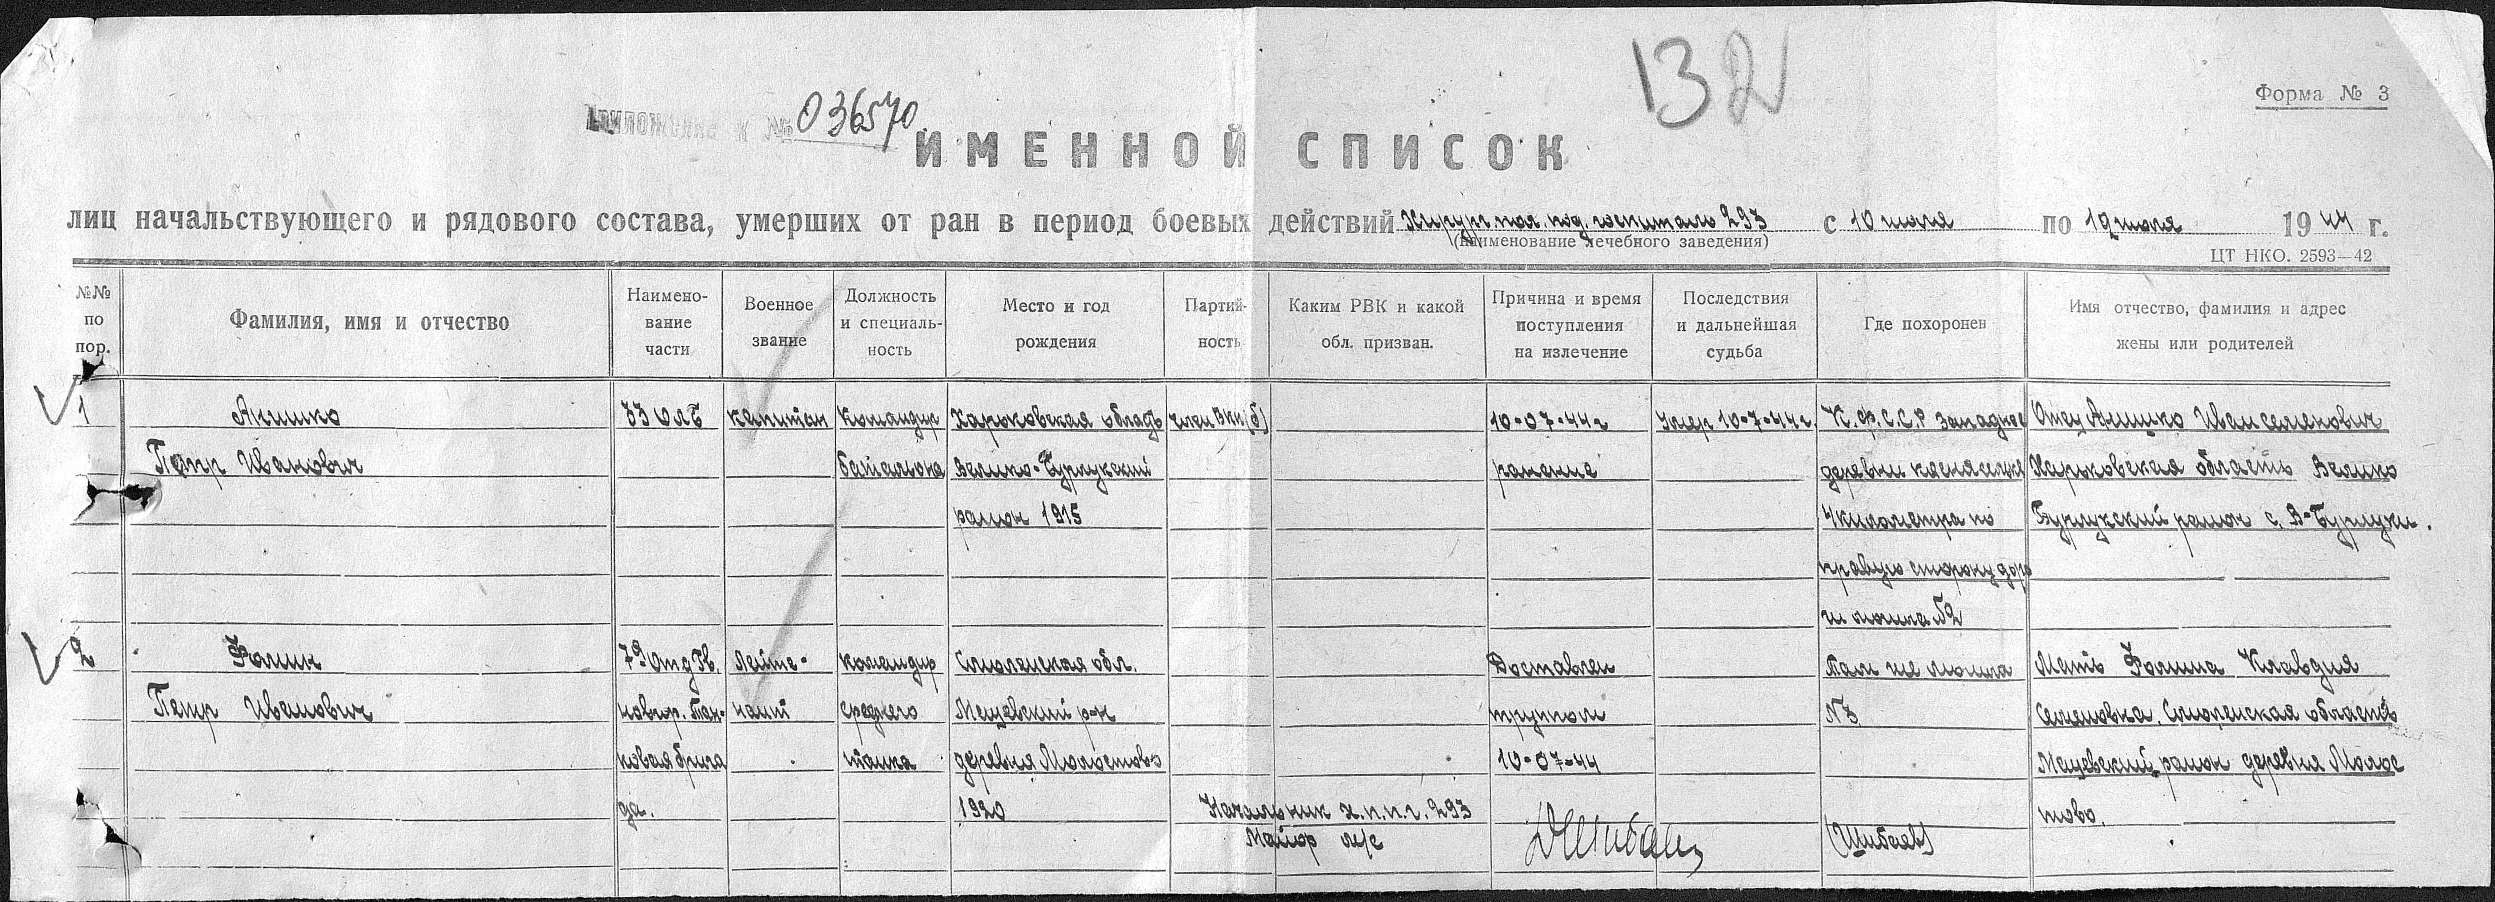 132
Форма № 3
Приложение к № 036570
ИМЕННОЙ СПИСОК
лиц начальствующего и рядового состава, умерших от ран в период боевых действий Хирург. пол. под. госпиталь 293 с 10 июля по 19 июля 1944 г.
(наименование лечебного заведения)
ЦТ НКО. 2593—42
№№ по пор.
Фамилия, имя и отчество
Наимено-
вание
части
Военное
звание
Должность
и специаль-
ность
Место и год
рождения
Партий-
ность
Каким РВК и какой
обл. призван.
Причина и время
поступления
на излечение
Последствия
и дальнейшая
судьба
Где похоронен
Имя отчество, фамилия и адрес
жены или родителей
1
Анишко
Петр Иванович
33
капитан
командир
батальона
Харьковская область
Велико-Бурлукский
район 1915
член ВКП(б)
10-07-44 г
ранение
Умер 10-7-44 г
К.Ф.С.С.Р западнее
деревни
километра по
правую сторону доро
ги могила №2
Отец Анишко Иван Семенович
Харьковская область Велико
Бурлукский район с. В-Бурлуки.
2
Фомин
Петр Иванович
7й Отд Гв.
новгор. Тан-
ковая брига
да.
Лейте-
нант
командир
среднего
танка
Смоленская обл.
Мещевский р-н
деревня Молостово
1920
Доставлен
трупом
10-07-44
Там же могила
№3
Мать Фомина Клавдия
Семеновна. Смоленская область
Мещевский район деревня Молос
тово.
Начальник х.п.п.г. 293
Майор м/с
(Шибаев)